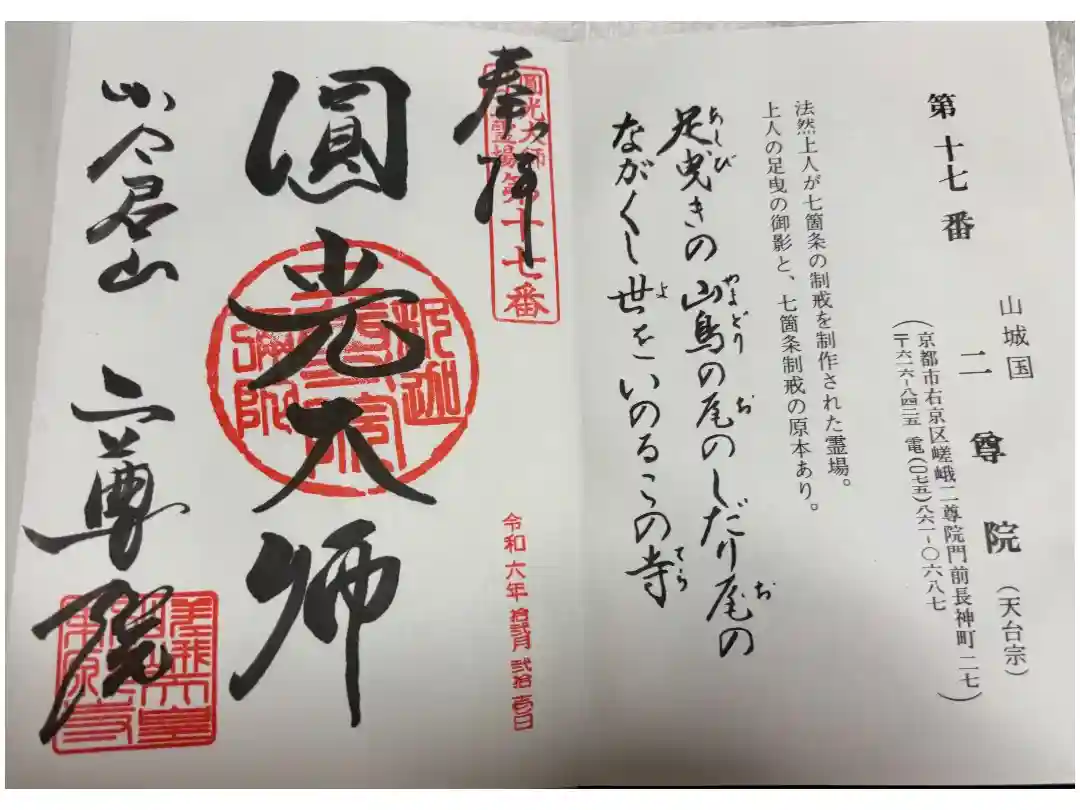 第十七番
山城国
二尊院(天台宗)
(京都市右京区嵯峨二尊院門前長神町二七)
〒六一六-八四二五 電(〇七五)八六一-〇六八七
法然上人が七箇条の制戒を制作された霊場。
上人の足曳の御影と、七箇条制戒の原本あり。
足曳きの山鳥の尾のしだり尾の
あしび やまどり お お
ながくし世をいのるこの寺
よ てら
奉拝
圓光大師
霊場第十七番
圓光大師
令和六年拾弐月弐拾壱日
小倉山 二尊院